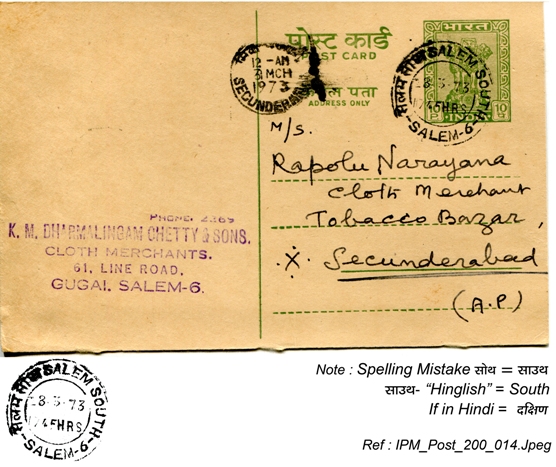 पोस्ट कार्ड
POST CARD
भारत
ADDRESS ONLY
INDIA
10
12 - AM
MCH
1973
SECUNDERABAD
सेलम सोथ SALEM SOUTH
-8-3-73
1745HRS
-SALEM-6-
M/s.
Rapolu Narayana
Cloth Merchant
Tobacco Bazar,
Secunderabad
(A.P)
PHONE: 2369
K. M. DHARMALINGAM CHETTY & SONS.
CLOTH MERCHANTS.
61, LINE ROAD,
GUGAI, SALEM-6.
सेलम सोथ SALEM SOUTH
-8-3-73
1745HRS
-SALEM-6-
Note : Spelling Mistake सोथ = साउथ
साउथ- “Hinglish” = South
If in Hindi = दक्षिण
Ref : IPM_Post_200_014.Jpeg